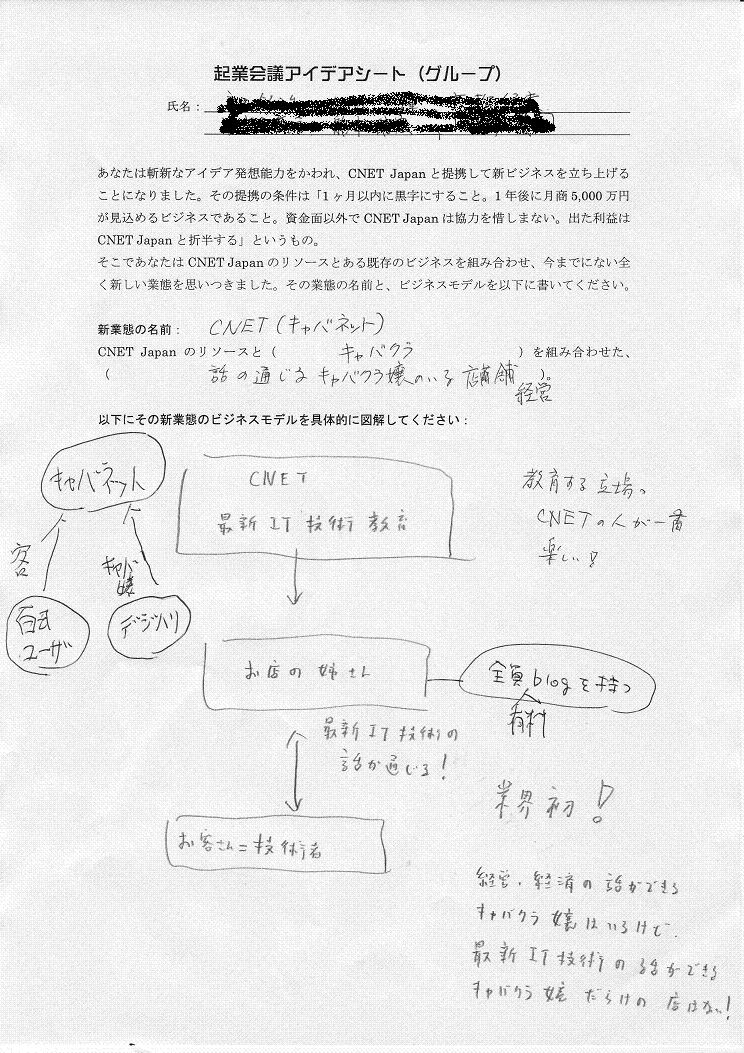 起業会議アイデアシート（グループ）
氏名：
あなたは斬新なアイデア発想能力をかわれ、CNET Japan と提携して新ビジネスを立ち上げる
ことになりました。その提携の条件は「1 ヶ月以内に黒字にすること。1 年後に月商 5,000 万円
が見込めるビジネスであること。資金面以外で CNET Japan は協力を惜しまない。出た利益は
CNET Japan と折半する」というもの。
そこであなたは CNET Japan のリソースとある既存のビジネスを組み合わせ、今までにない全
く新しい業態を思いつきました。その業態の名前と、ビジネスモデルを以下に書いてください。
新業態の名前： CNET（キャバネット）
CNET Japan のリソースと（ キャバクラ ）を組み合わせた、
（ 話の通じるキャバクラ嬢のいる店舗 ）。
経営
以下にその新業態のビジネスモデルを具体的に図解してください：
キャバネット
客
キャバ嬢
ユーザ
デジハリ
CNET
最新IT技術教育
教育する立場の
CNETの人が一番
楽しい!
お店の姉さん
全員blogを持つ
有料
最新IT技術の
話が通じる!
お客さん=技術者
業界初!
経営・経済の話ができる
キャバクラ嬢はいるけど、
最新IT技術の話ができる
キャバクラ嬢だらけの店はない!